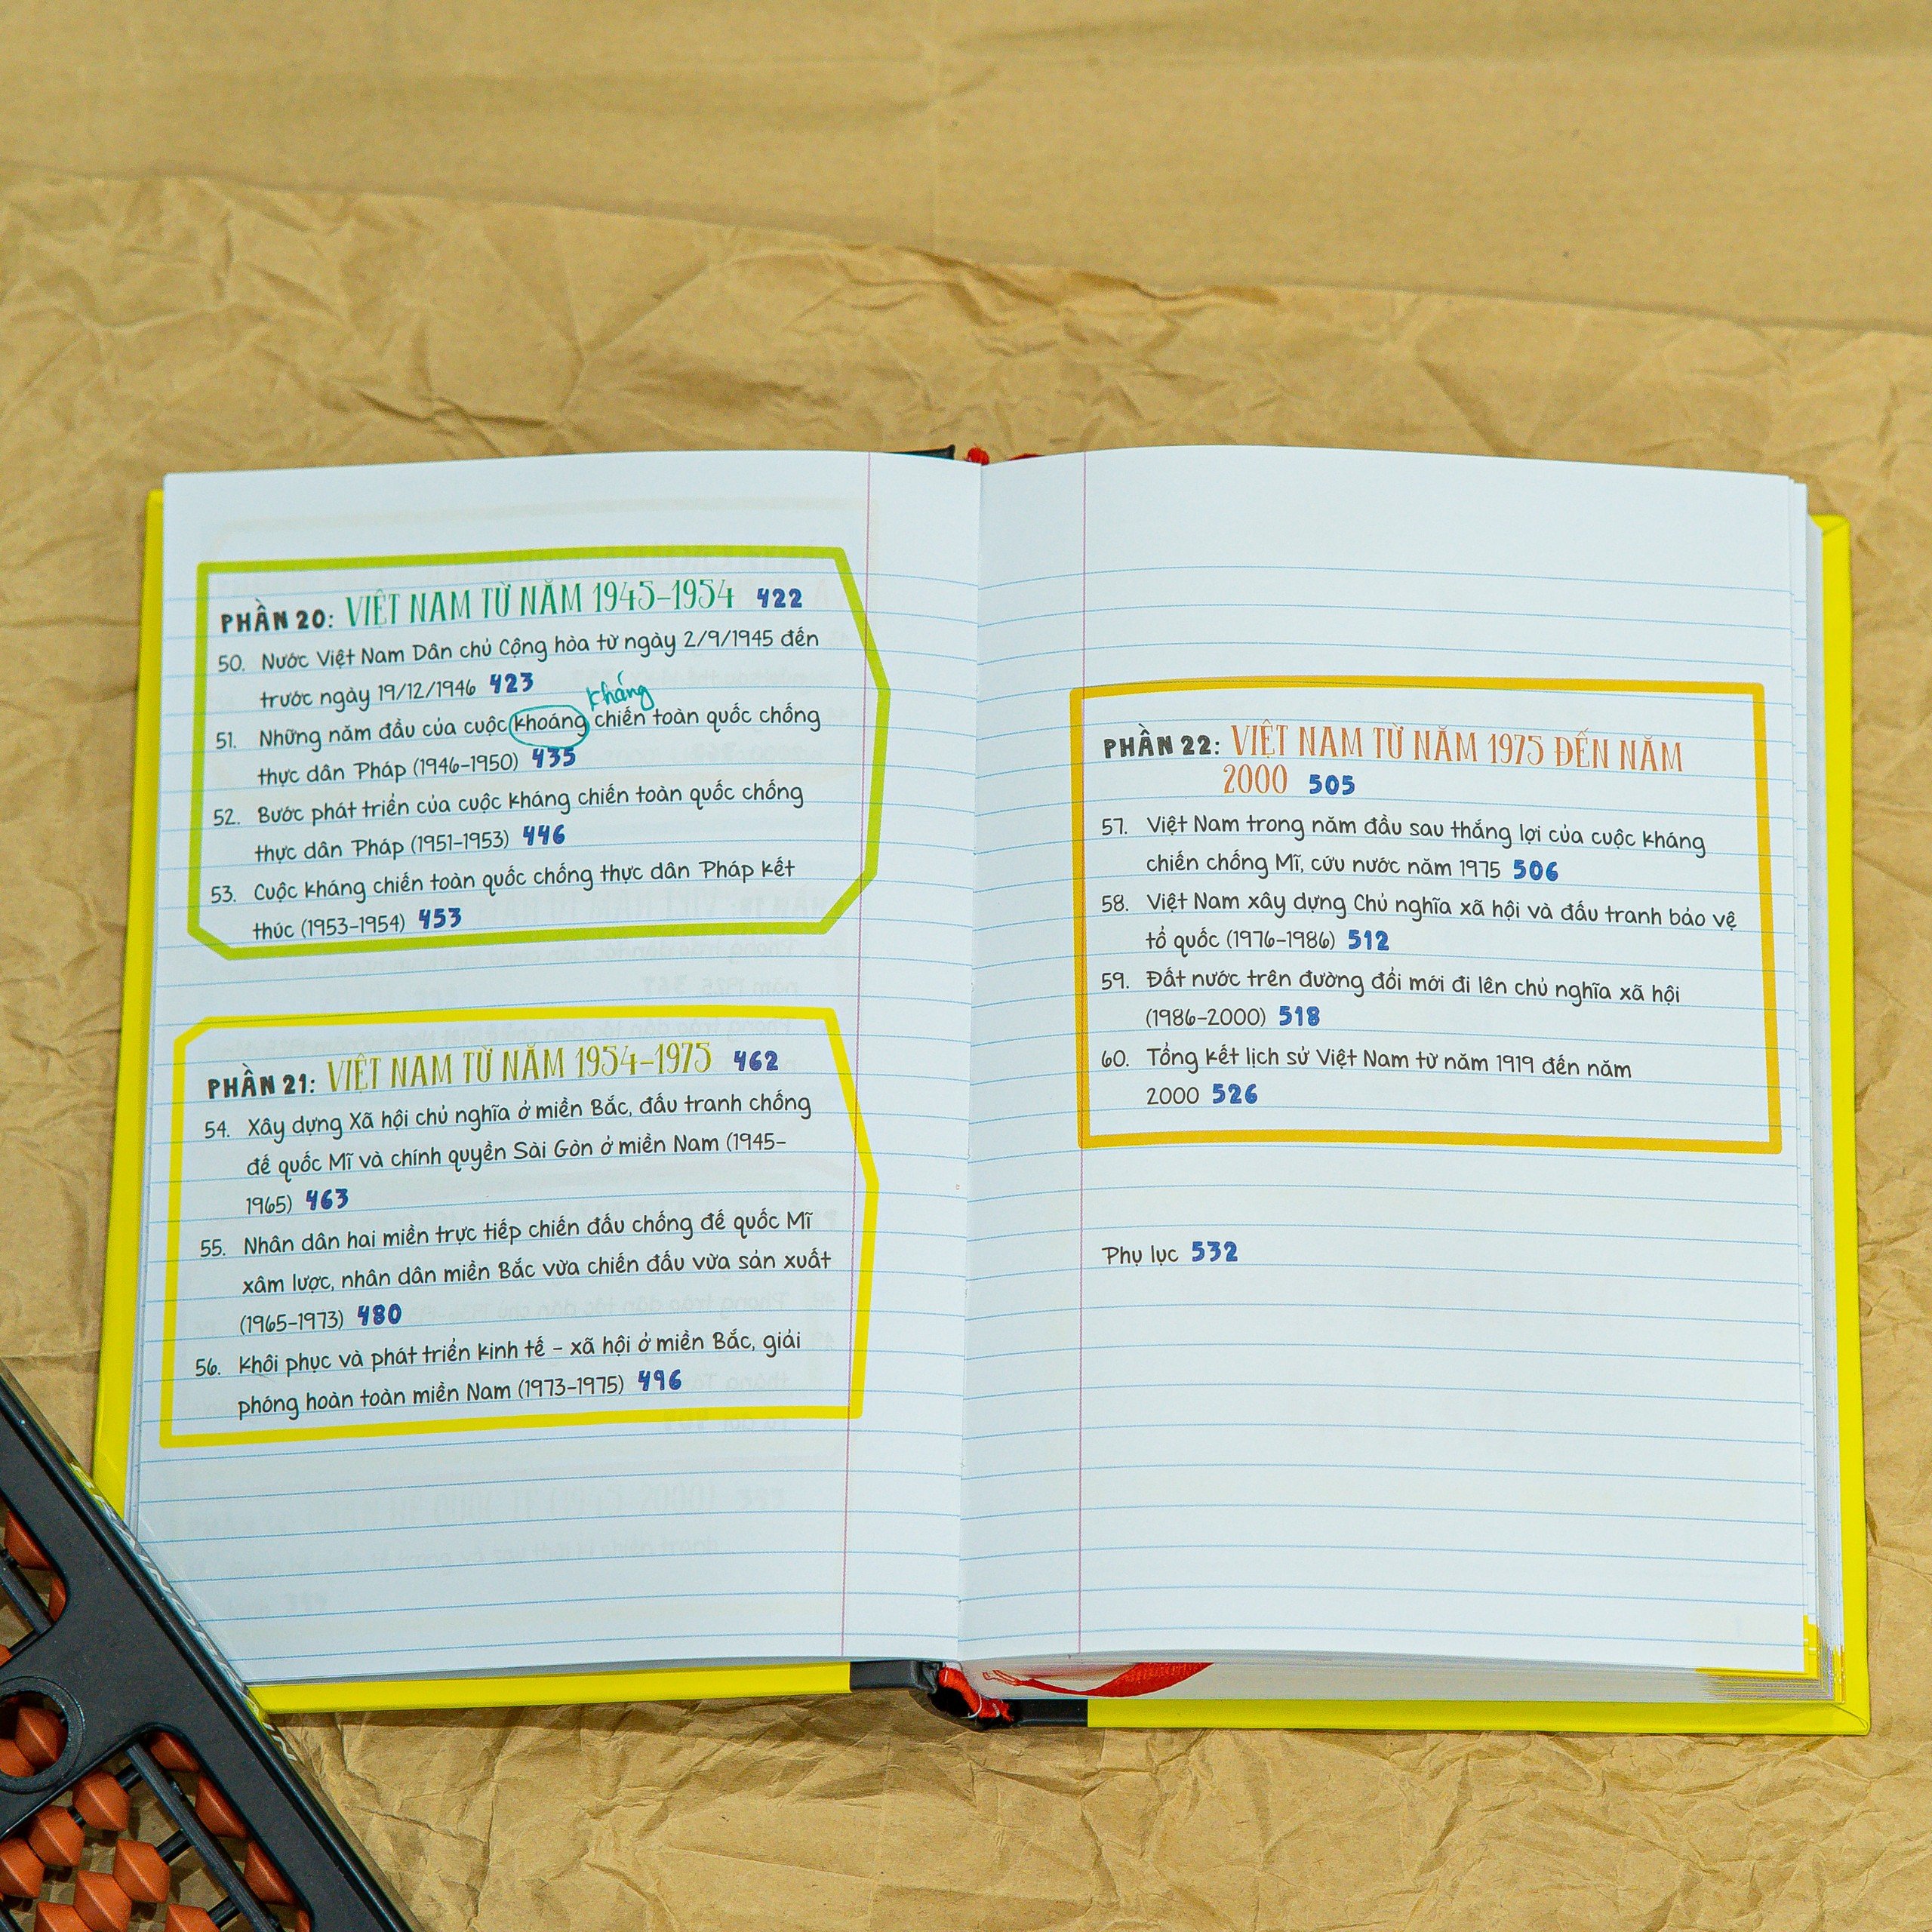 PHẦN 20: VIỆT NAM TỪ NĂM 1945-1954 422
50. Nước Việt Nam Dân chủ Cộng hòa từ ngày 2/9/1945 đến
trước ngày 19/12/1946 423
kháng
51. Những năm đầu của cuộc khoáng chiến toàn quốc chống
thực dân Pháp (1946-1950) 435
52. Bước phát triển của cuộc kháng chiến toàn quốc chống
thực dân Pháp (1951-1953) 446
53. Cuộc kháng chiến toàn quốc chống thực dân Pháp kết
thúc (1953-1954) 453
PHẦN 21: VIỆT NAM TỪ NĂM 1954-1975 462
54. Xây dựng Xã hội chủ nghĩa ở miền Bắc, đấu tranh chống
đế quốc Mĩ và chính quyền Sài Gòn ở miền Nam (1945-
1965) 463
55. Nhân dân hai miền trực tiếp chiến đấu chống đế quốc Mĩ
xâm lược, nhân dân miền Bắc vừa chiến đấu vừa sản xuất
(1965-1973) 480
56. Khôi phục và phát triển kinh tế - xã hội ở miền Bắc, giải
phóng hoàn toàn miền Nam (1973-1975) 496
PHẦN 22: VIỆT NAM TỪ NĂM 1975 ĐẾN NĂM
2000 505
57. Việt Nam trong năm đầu sau thắng lợi của cuộc kháng
chiến chống Mĩ, cứu nước năm 1975 506
58. Việt Nam xây dựng Chủ nghĩa xã hội và đấu tranh bảo vệ
tổ quốc (1976-1986) 512
59. Đất nước trên đường đổi mới đi lên chủ nghĩa xã hội
(1986-2000) 518
60. Tổng kết lịch sử Việt Nam từ năm 1919 đến năm
2000 526
Phụ lục 532